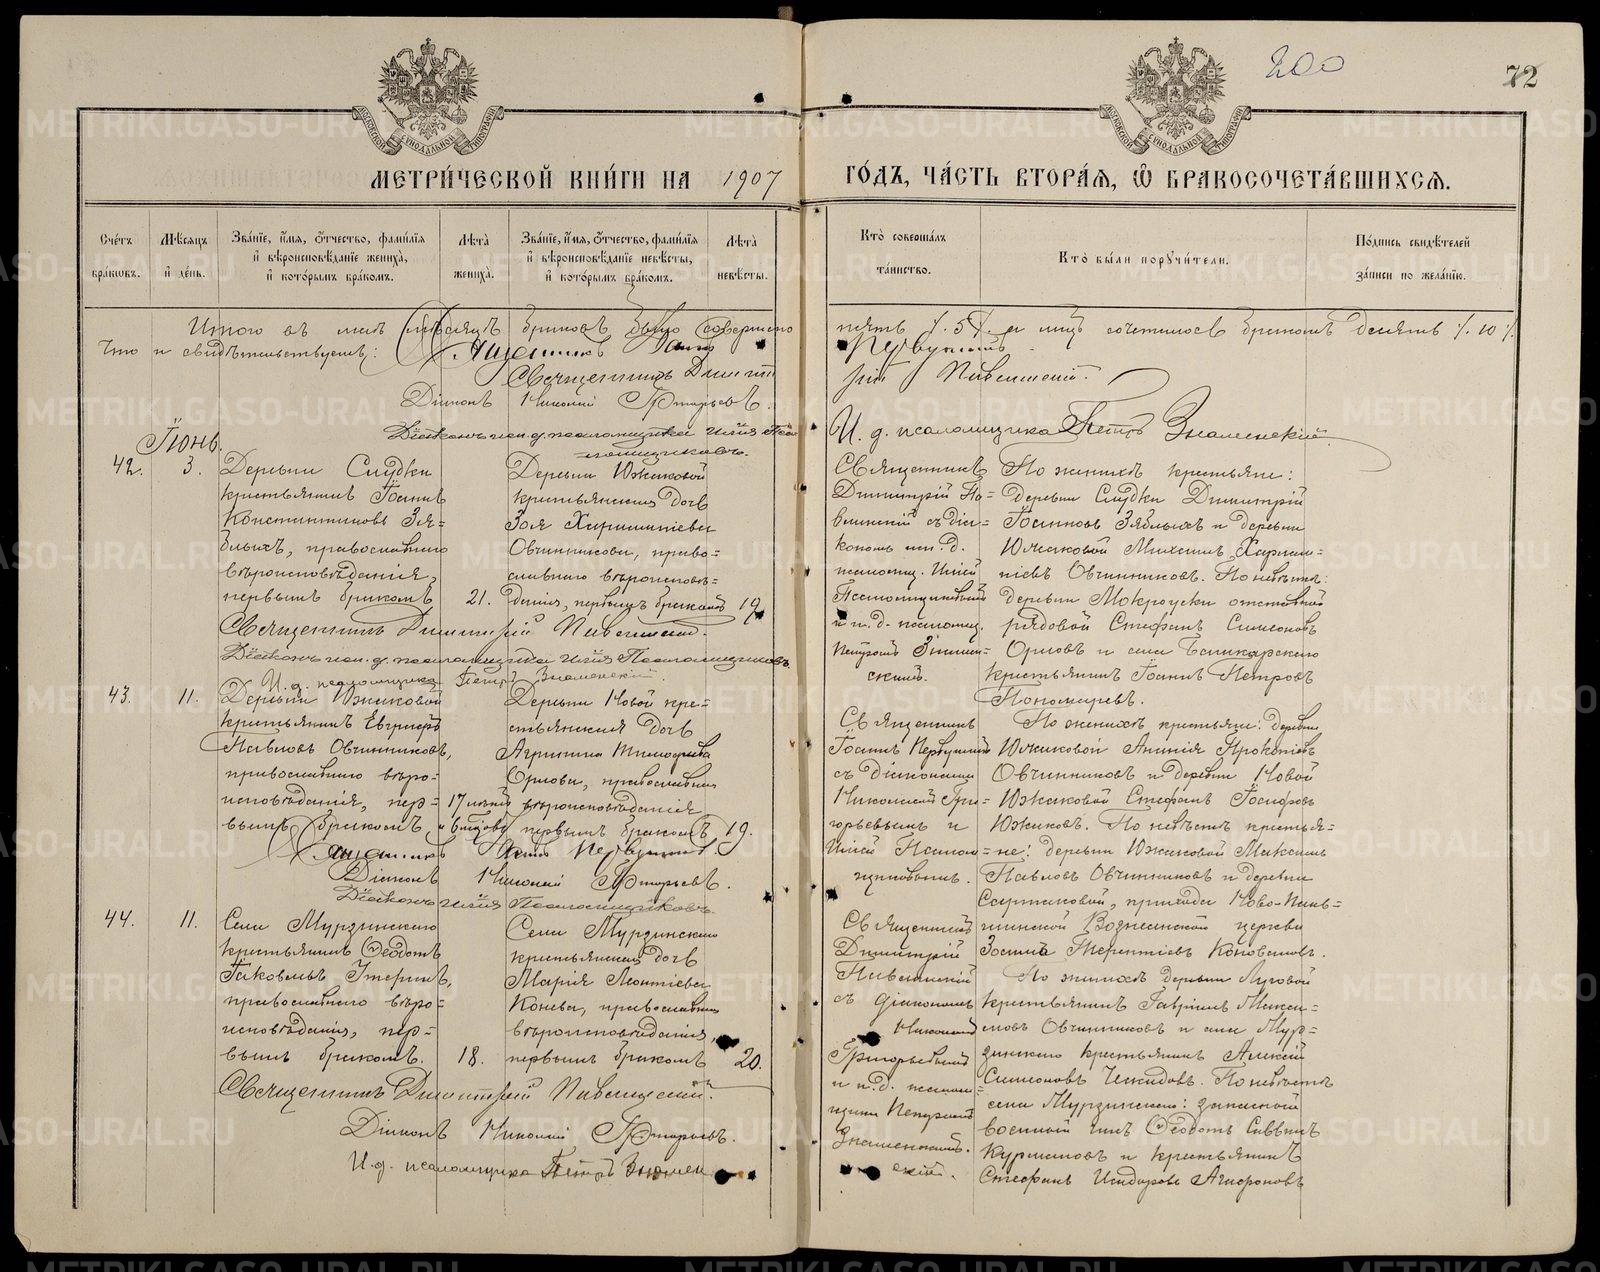 200
72
МОСКОВСКОЙ СѴНОДАЛЬНОЙ ТИПОГРАФІИ
МОСКОВСКОЙ СѴНОДАЛЬНОЙ ТИПОГРАФІИ
МЕТРИ́ЧЕСКОЙ КНИ́ГИ НА 1907 ГО́ДЪ, ЧА́СТЬ ВТОРА́Ѧ, Ѽ БРАКОСОЧЕТА́ВШИХСѦ.
Сче́тъ бра́кωвъ.
Мѣ́сѧцъ и҆ де́нь.
Зва́нїе, и҆́мѧ, ѻ҆́тчество, фамѝлїѧ и҆ вѣроисповѣ́данїе жениха̀, и҆ кото́рымъ бра́комъ.
Лѣ́та жениха̀.
Зва́нїе, и҆́мѧ, ѻ҆́тчество, фамѝлїѧ и҆ вѣроисповѣ́данїе невѣ́сты, и҆ кото́рымъ бра́комъ.
Лѣ́та невѣ́сты.
Кто̀ соверша́лъ та́инство.
Кто̀ бы́ли порꙋчи́тели.
По́дпись свидѣ́телей за́писи по жела́нїю.
Итого въ маѣ мѣсяцѣ браковъ было совершено пять /. 5 /. а лицъ сочеталось бракомъ десять /. 10 /.
Что и свидѣтельствуемъ: Священникъ
Священникъ Димитрій Павлинскій.
Діаконъ Николай Григорьевъ.
Діаконъ на и. д. псаломщика Илія Псаломщиковъ.
И. д. псаломщика Петръ Знаменскій.
Іюнь.
42. 3.
Деревни Слудки
крестьянинъ Іоаннъ
Константиновъ Зя=
блыхъ, православнаго
вѣроисповѣданія,
первымъ бракомъ
21.
Деревни Южаковой
крестьянская дочь
Зоя Харлампіева
Овчинникова, право=
славнаго вѣроисповѣ=
данія, первымъ бракомъ
19.
Священникъ
Димитрій Па=
влинскій съ діа=
кономъ на и. д.
псаломщ. Иліей
Псаломщиковымъ
и и. д. псаломщ.
Петромъ Знамен=
скимъ.
По женихѣ крестьяне:
деревни Слудки Димитрій
Іоанновъ Зяблыхъ и деревни
Южаковой Михаилъ Харлам=
піевъ Овчинниковъ. По невѣстѣ:
деревни Мокроуски отставной
рядовой Стефанъ Симеоновъ
Орловъ и села Башкарского
крестьянинъ Іоаннъ Петровъ
Пономаревъ.
Священникъ Димитрій Павлинскій.
Діаконъ на и. д. псаломщика Илія Псаломщиковъ
И. д. псаломщика Петръ Знаменскій.
43. 11.
Деревни Южаковой
крестьянинъ Евграфъ
Павловъ Овчинниковъ,
православнаго вѣро=
исповѣданія, пер=
вымъ бракомъ
17 лѣтъ
Деревни Новой кре=
стьянская дочь
Агрипина Тимофеева
Орлова, православнаго
вѣроисповѣданія
первымъ бракомъ
19.
Священникъ
Іоаннъ Первушинъ
съ діаконами
Николаемъ Гри=
горьевымъ и
Иліей Псалом=
щиковымъ.
По женихѣ крестьяне: деревни
Южаковой Ананія Прокопіевъ
Овчинниковъ и деревни Новой
Южаковой Стефанъ Іосифовъ
Южаковъ. По невѣстѣ крестья=
не: деревни Южаковой Максимъ
Павловъ Овчинниковъ и деревни
Сартаковой, прихода Ново-Пань=
шинской Вознесенской церкви
Зосима Терентіевъ Коноваловъ.
Священникъ Іоаннъ Первушинъ.
Діаконъ Николай Григорьевъ.
Діаконъ Илія Псаломщиковъ.
44. 11.
Села Мурзинскаго
крестьянинъ Ѳеодотъ
Іаковлевъ
православнаго вѣро=
исповѣданія, пер=
вымъ бракомъ.
18.
Села Мурзинскаго
крестьянская дочь
Марія Леонтіева
Конева, православнаго
вѣроисповѣданія,
первымъ бракомъ
20.
Священникъ
Димитрій
Павлинскій
съ діакономъ
Николаемъ
Григорьевымъ
и и. д. псалом=
щика Петромъ
Знаменскимъ.
По женихѣ деревни Луговой
крестьянинъ Гавріилъ Макси=
мовъ Овчинниковъ и села Мур=
зинскаго крестьянинъ Алексій
Симеоновъ По невѣстѣ
села Мурзинскаго: запасной
военный чинъ Ѳеодотъ Саввинъ
Курмановъ и крестьянинъ
Стефанъ Исидоровъ Агафоновъ
Священникъ Димитрій Павлинскій.
Діаконъ Николай Григорьевъ.
И. д. псаломщика Петръ Знаменскій.
METRIKI.GASO-URAL.RU